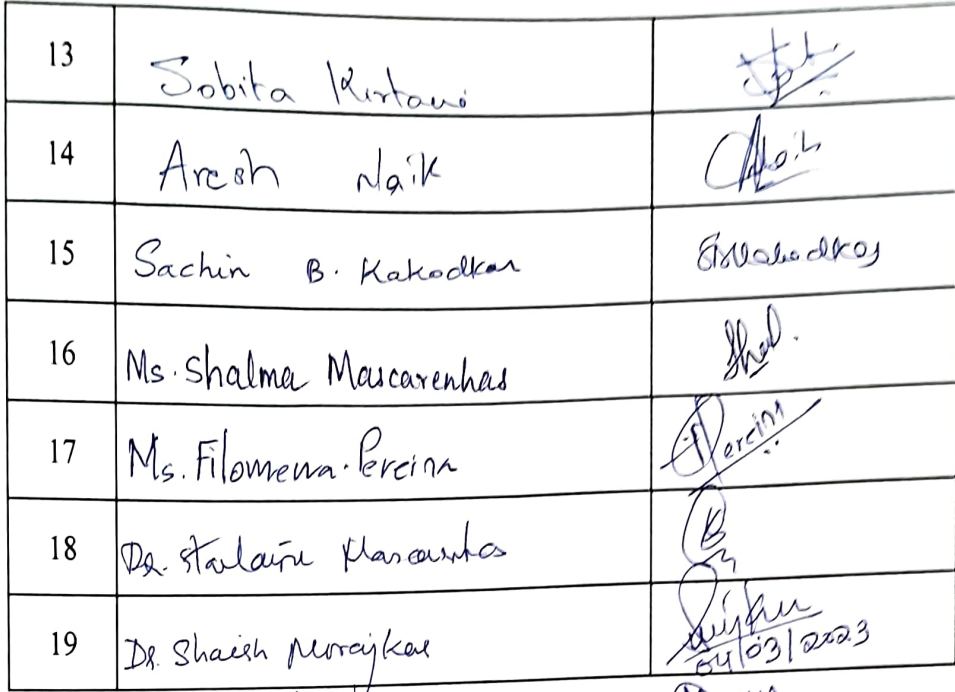 13 Sobita Kirtani
14 Aresh Naik Naik
15 Sachin B. Kakodkar SBKakodkar
16 Ms. Shalma Mascarenhas Shal.
17 Ms. Filomena. Pereira Pereira
18 Dr.
19 Dr. Shaish Morajkar 04/03/2023